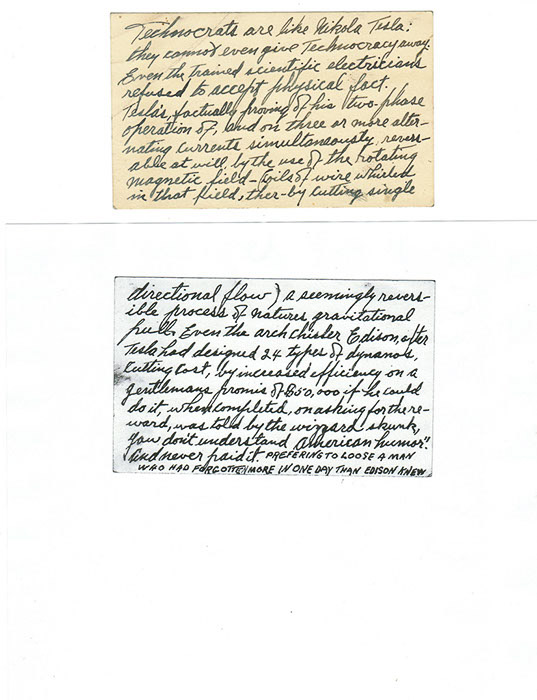 Technocrats are like Nikola Tesla:
they cannot even give Technocracy away.
Even the trained scientific electricians
refused to accept physical fact.
Tesla's, factually proving of his two-phase
operation of, and on three or more alter-
nating currents simultaneously, revers-
able at will, by the use of the rotating
magnetic field - (coils of wire whirled
in that field, ther-by cutting single
directional flow) a seemingly revers-
ible process of natures gravitational
pull. Even the arch chisler Edison, after
Tesla had designed 24 types of dynamos,
cutting cost, by increased efficiency on a
gentlemans promis of $50,000 if he could
do it, when completed, on asking for the re-
ward, was told by the wizzard skunk,
"you don't understand American humor".
And never paid it. PREFERING TO LOOSE A MAN
WHO HAD FORGOTTEN MORE IN ONE DAY THAN EDISON KNEW